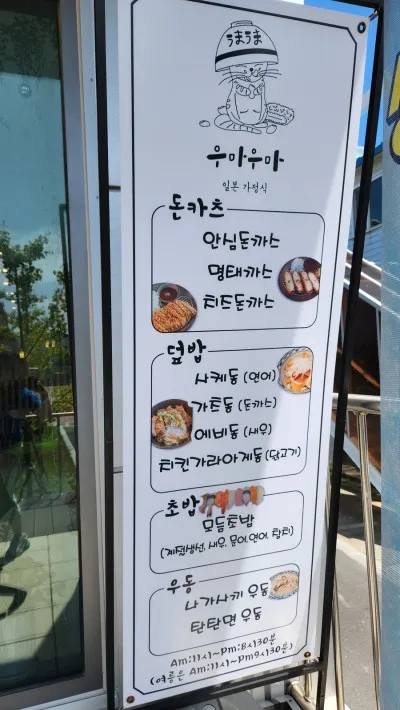 うまうま
우마우마
일본 가정식
돈카츠
안심돈까스
명태까스
치즈돈까스
덮밥
사케동 (연어)
가츠동 (돈까스)
에비동 (새우)
치킨가라아게동 (닭고기)
초밥
모듬초밥
(계절생선, 새우, 문어, 연어, 참치)
우동
나가사끼 우동
탄탄면 우동
Am:11시~pm:8시30분
(여름은 Am:11시~pm9시30분)